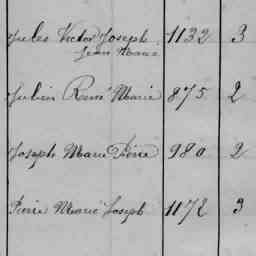 Jules Victor Joseph 1132 3
Jean Marie
Julien René Marie 875 2
Joseph Marie Pierre 980 2
Pierre Marie Joseph 1172 3